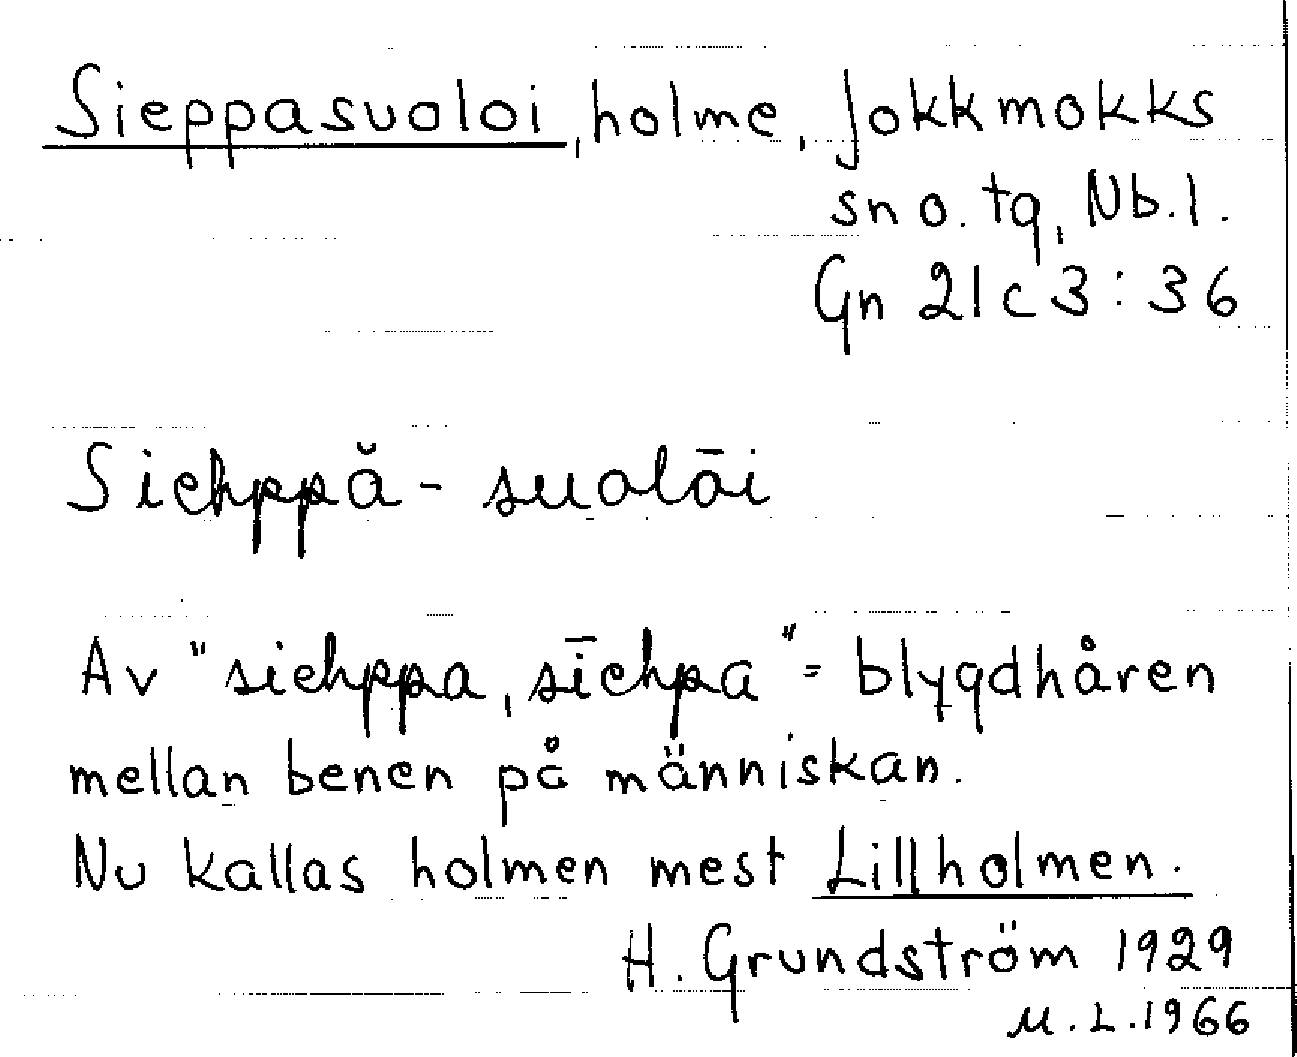 Sieppasuoloi, holme, Jokkmokks
sn o. tg, Nb.l.
Gn 21c3:36
Siehppă-suolōi
Av "siehppa, sīehpa" = blygdhåren
mellan benen på människan.
Nu kallas holmen mest Lillholmen.
H. Grundström 1929
M.L.1966